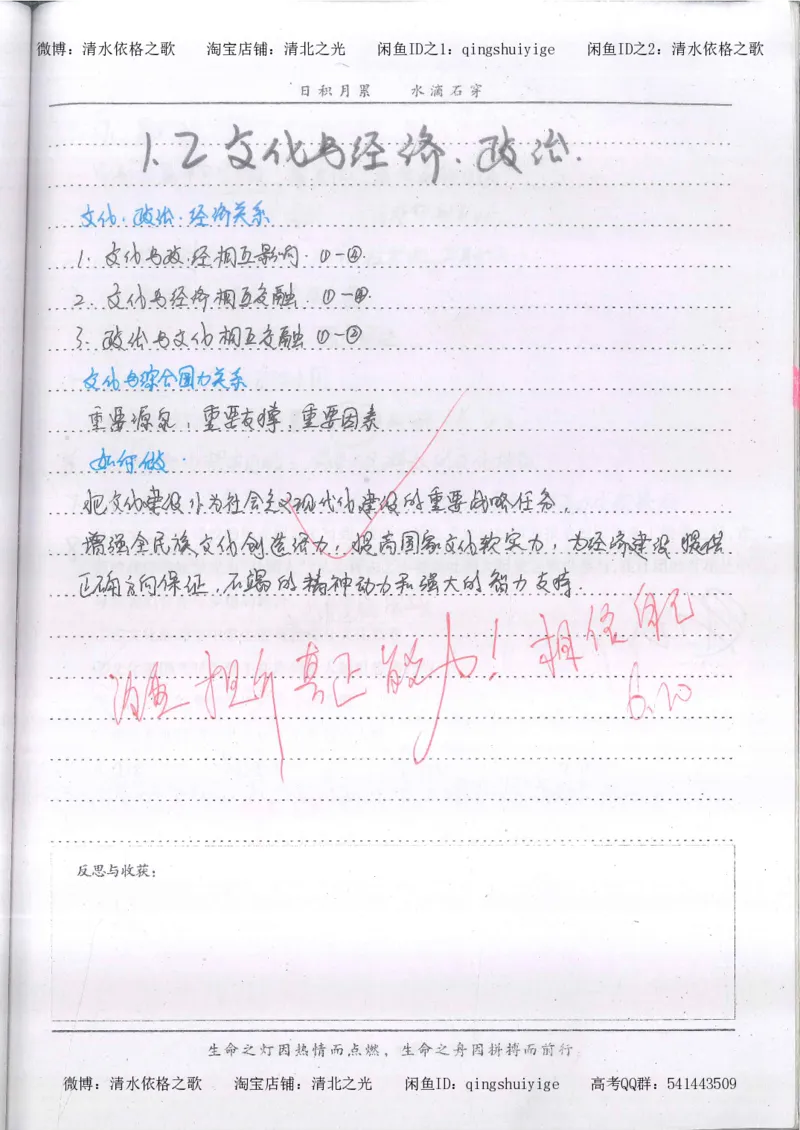 微博：清水依格之歌 淘宝店铺：清北之光 闲鱼ID之1：qingshuiyige 闲鱼ID之2：清水依格之歌
日积月累 水滴石穿
1.2 文化与经济、政治.
文化、政治、经济关系
1. 文化与政.经相互影响. ①-④.
2. 文化与经济相互交融. ①-④.
3. 政治与文化相互交融 ①-②
文化与综合国力关系
重要源泉，重要支撑，重要因素
如何做.
把文化建设作为社会主义现代化建设的重要战略任务，
增强全民族文化创造活力，提高国家文化软实力，为经济建设提供
正确方向保证，不竭的精神动力和强大的智力支持.
真正能力！相信自己
6.20
反思与收获：
生命之灯因热情而点燃，生命之舟因拼搏而前行
微博：清水依格之歌 淘宝店铺：清北之光 闲鱼ID：qingshuiyige 高考QQ群：541443509